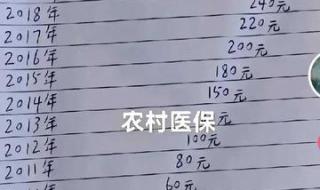 2018年 240元
2017年 220元
2016年 200元
2015年 180元
2014年 150元
2013年
农村医保
2012年 100元
2011年 80元
60元